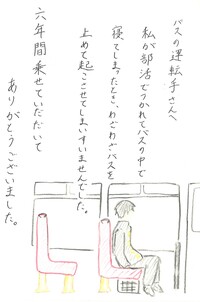 バスの運転手さんへ
私が部活でつかれてバスの中で
寝てしまったとき、わざわざバスを
止めて起こさせてしまいすいませんでした。
六年間乗せていただいて
ありがとうございました。